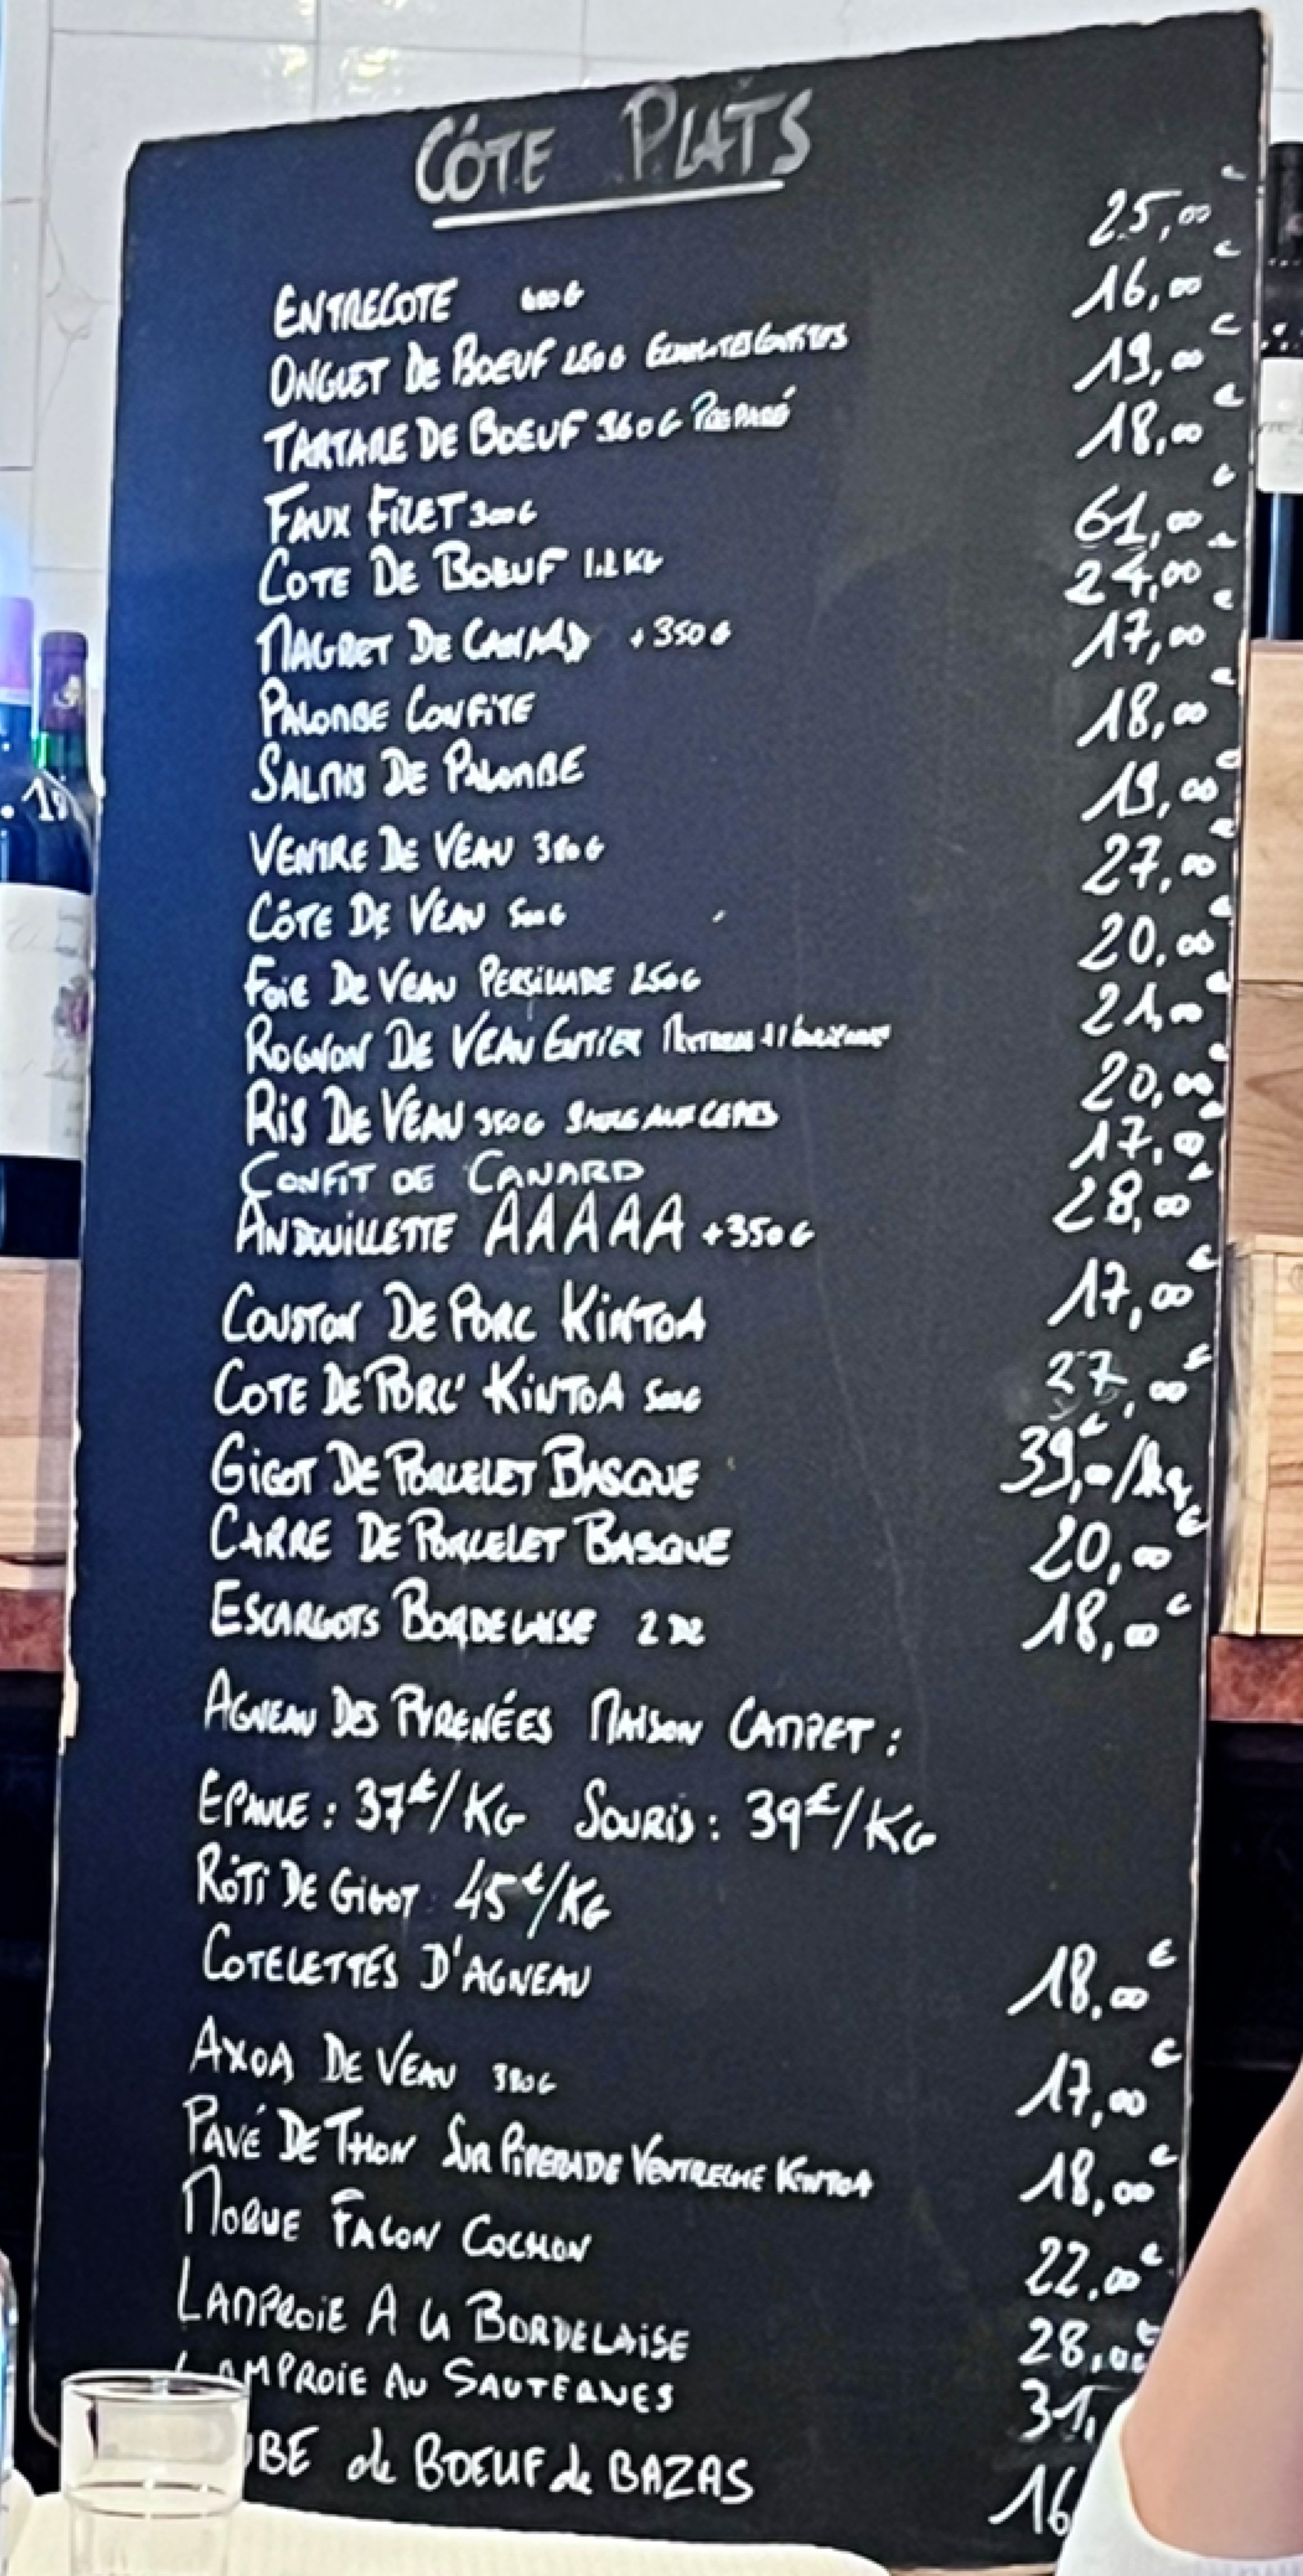 CÔTE PLATS
ENTRECOTE 400G 25,00€
ONGLET DE BOEUF 250G ECHALOTES CONFITES 16,00€
TARTARE DE BOEUF 360G PREPARÉ 19,00€
FAUX FILET 300G 18,00€
COTE DE BOEUF 1.2KG 61,00€
MAGRET DE CANARD +350G 24,00€
PALOMBE CONFITE 17,00€
SALMIS DE PALOMBE 18,00€
VENTRE DE VEAU 380G 19,00€
CÔTE DE VEAU 500G 27,00€
FOIE DE VEAU PERSILLADE 250G 20,00€
ROGNON DE VEAU ENTIER 21,00€
RIS DE VEAU 350G SAUCE AUX CEPES 20,00€
CONFIT DE CANARD 17,00€
ANDOUILLETTE AAAAA +350G 28,00€
COUSTON DE PORC KINTOA 17,00€
COTE DE PORC KINTOA 500G 27,00€
GIGOT DE PORCELET BASQUE 39,00€/kg
CARRE DE PORCELET BASQUE 20,00€
ESCARGOTS BORDELAISE 2 DZ 18,00€
AGNEAU DES PYRENÉES MAISON CAMPET :
EPAULE : 37€/KG SOURIS : 39€/KG
RÔTI DE GIGOT : 45€/KG
COTELETTES D'AGNEAU 18,00€
AXOA DE VEAU 380G 17,00€
PAVÉ DE THON SUR PIPERADE VENTRECHE KINTOA 18,00€
MORUE FACON COCHON 22,00€
LAMPROIE A LA BORDELAISE 28,00€
LAMPROIE AU SAUTERNES 31,
UBE de BOEUF de BAZAS 16